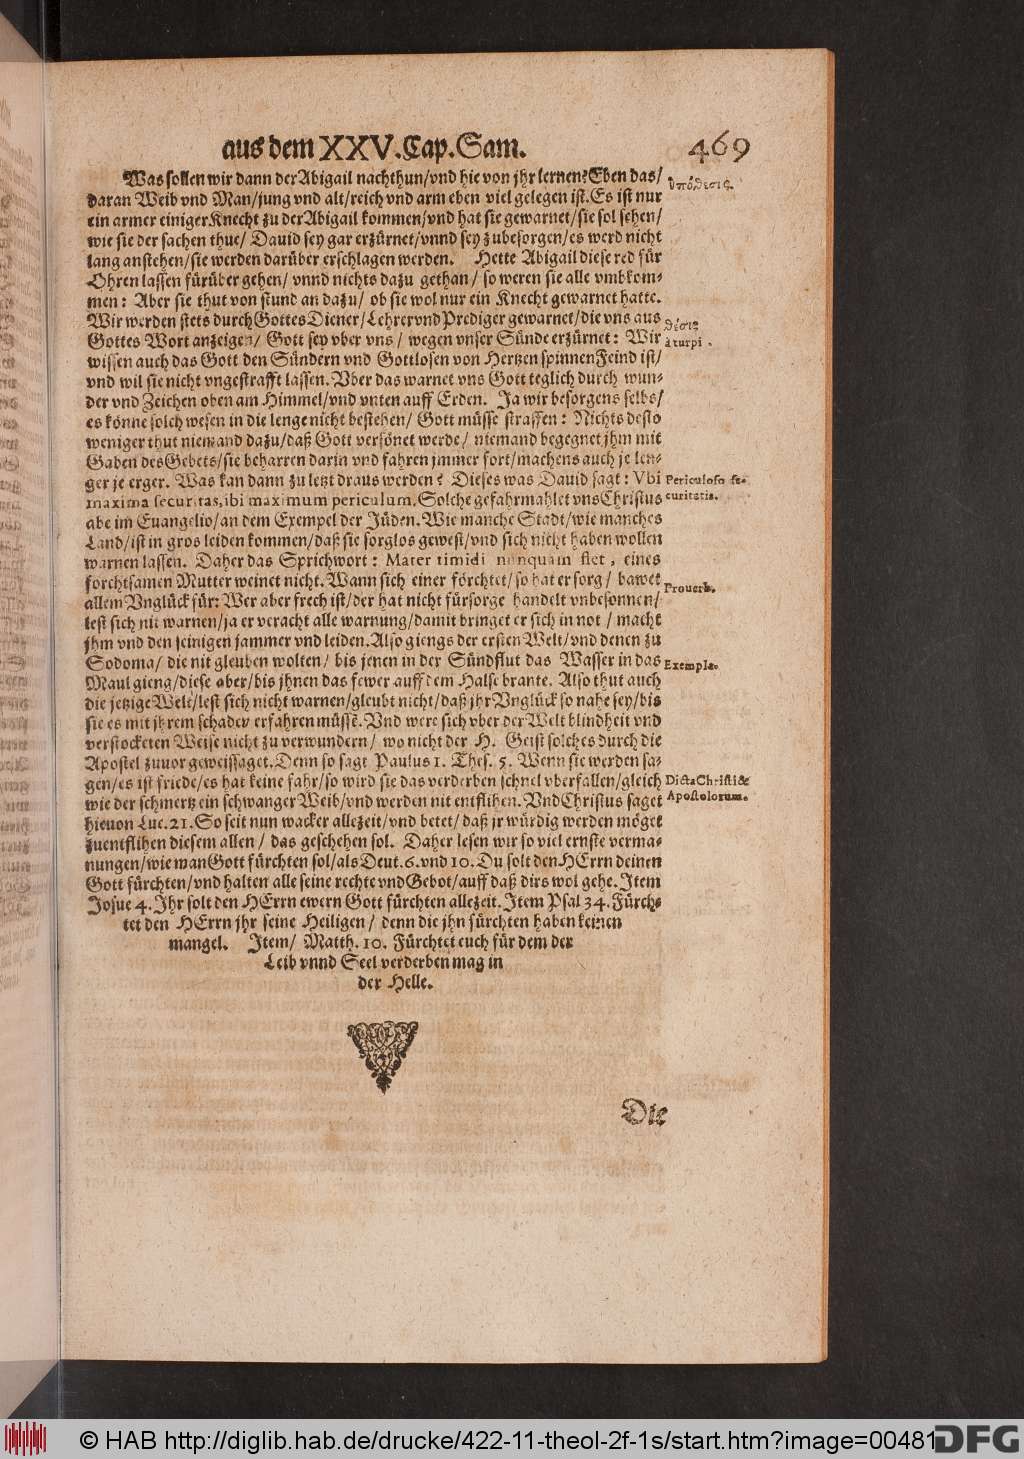 aus dem XXV. Cap. Sam. 469
Was sollen wir dann der Abigail nachthun/vnd hie von jhr lernen? Eben das/
daran Weib vnd Man/jung vnd alt/reich vnd arm eben viel gelegen ist. Es ist nur
ein armer einiger Knecht zu der Abigail kommen/vnd hat sie gewarnet/sie sol sehen/
wie sie der sachen thue/ Dauid sey gar erzürnet/vnnd sey zubesorgen/es werd nicht
lang anstehen/sie werden darüber erschlagen werden. Hette Abigail diese red für
Ohren lassen fürüber gehen/ vnnd nichts dazu gethan/ so weren sie alle vmbkom-
men: Aber sie thut von stund an dazu/ ob sie wol nur ein Knecht gewarnet hatte.
Wir werden stets durch Gottes Diener/Lehrer vnd Prediger gewarnet/die vns aus
Gottes Wort anzeigen/ Gott sey vber vns/ wegen vnser Sünde erzürnet: Wir
wissen auch das Gott den Sündern vnd Gottlosen von Hertzen spinnen Feind ist/
vnd wil sie nicht vngestrafft lassen. Vber das warnet vns Gott teglich durch wun-
der vnd Zeichen oben am Himmel/vnd vnten auff Erden. Ja wir besorgens selbs/
es könne solch wesen in die lenge nicht bestehen/ Gott müsse straffen: Nichts desto
weniger thut niemand dazu/daß Gott versönet werde/ niemand begegnet jhm mit
Gaben des Gebets/sie beharren darin vnd fahren jmmer fort/machens auch je len-
ger je erger. Was kan dann zu letzt draus werden? Dieses was Dauid sagt: Vbi
maxima securitas, ibi maximum periculum. Solche gefahr mahlet vns Christus
abe im Euangelio/an dem Exempel der Jüden. Wie manche Stadt/wie manches
Land/ist in gros leiden kommen/daß sie sorglos gewest/vnd sich nicht haben wollen
warnen lassen. Daher das Sprichwort: Mater timidi nunquam flet, eines
forchtsamen Mutter weinet nicht. Wann sich einer förchtet/so hat er sorg/ bawet
allem Vnglück für: Wer aber frech ist/der hat nicht fürsorge handelt vnbesonnen/
lest sich nit warnen/ja er veracht alle warnung/damit bringet er sich in not/ macht
jhm vnd den seinigen jammer vnd leiden. Also giengs der ersten Welt/vnd denen zu
Sodoma/ die nit gleuben wolten/ bis jenen in der Sündflut das Wasser in das
Maul gieng/diese aber/bis jhnen das fewer auff dem Halse brante. Also thut auch
die jetzige Welt/lest sich nicht warnen/gleubt nicht/daß jhr Vnglück so nahe sey/bis
sie es mit jhrem schaden erfahren müssē. Vnd were sich vber der Welt blindheit vnd
verstocketen Weise nicht zu verwundern/ wo nicht der H. Geist solches durch die
Apostel zuuor geweissaget. Denn so sagt Paulus 1. Thes. 5. Wenn sie werden sa-
gen/es ist friede/es hat keine fahr/so wird sie das verderben schnel vberfallen/gleich
wie der schmertz ein schwanger Weib/vnd werden nit entflihen. Vnd Christus saget
hieuon Luc. 21. So seit nun wacker allezeit/vnd betet/ daß jr würdig werden möget
zuentflihen diesem allen/ das geschehen sol. Daher lesen wir so viel ernste verma-
nungen/wie man Gott fürchten sol/als Deut. 6. vnd 10. Du solt den HErrn deinen
Gott fürchten/vnd halten alle seine rechte vnd Gebot/auff daß dirs wol gehe. Item
Josue 4. Ihr solt den HErrn ewern Gott fürchten allezeit. Item Psal 34. Fürch-
tet den HErrn jhr seine Heiligen/ denn die jhn fürchten haben keinen
mangel. Item/ Matth. 10. Fürchtet euch für dem der
Leib vnnd Seel verderben mag in
der Helle.
ὑπόθεσις.
θέσις
à turpi.
Periculosa se-
curitatis.
Prouerb.
Exempla.
Dicta Christi &
Apostolorum.
Die
© HAB http://diglib.hab.de/drucke/422-11-theol-2f-1s/start.htm?image=00481
DFG